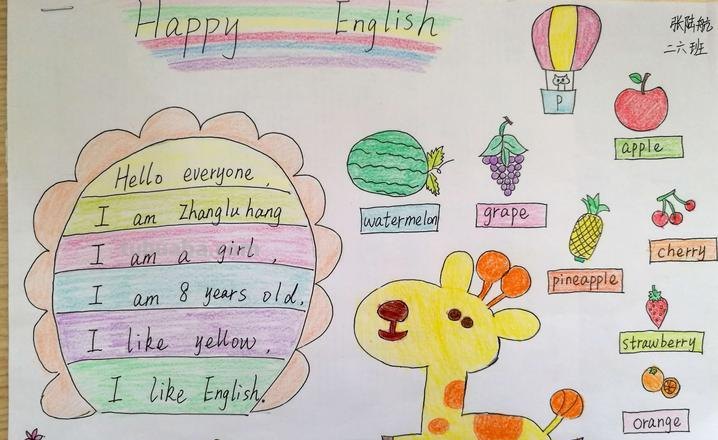 Happy English
张陆航
二六班
Hello everyone,
I am Zhanglu hang
I am a girl,
I am 8 years old.
I like yellow,
I like English.
P
apple
watermelon
grape
pineapple
cherry
strawberry
orange